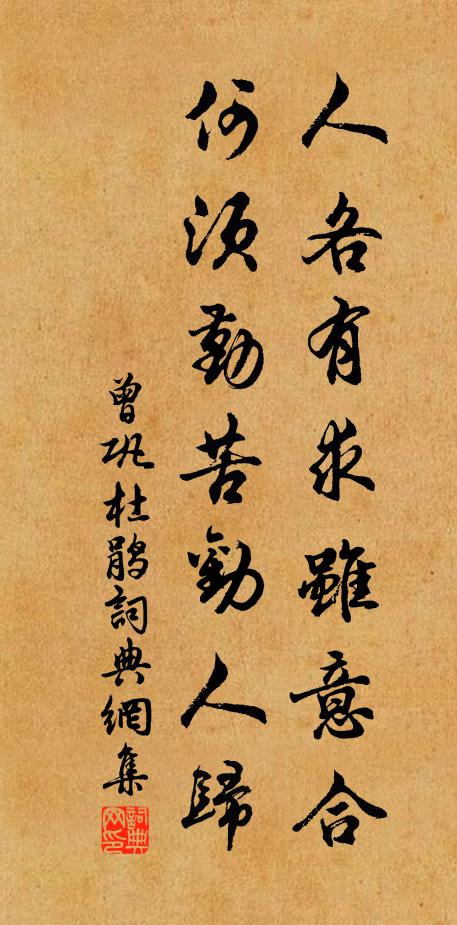 人各有求雖意合
何須勤苦勸人歸
曾巩杜鹃詞典網集
詞典網印